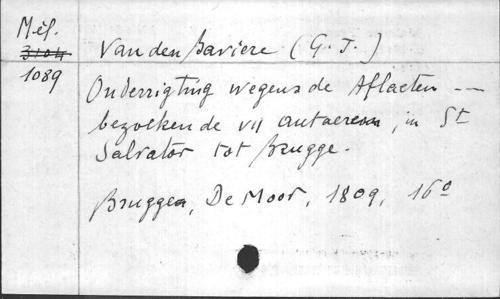 Mél.
3104
1089
Van den Baviere (G. J.)
Onderrigting wegens de Aflaeten ---
bezoekende vij autaeren, in St
Salvator tot Brugge.
Brugge, De Moor, 1809, 16º